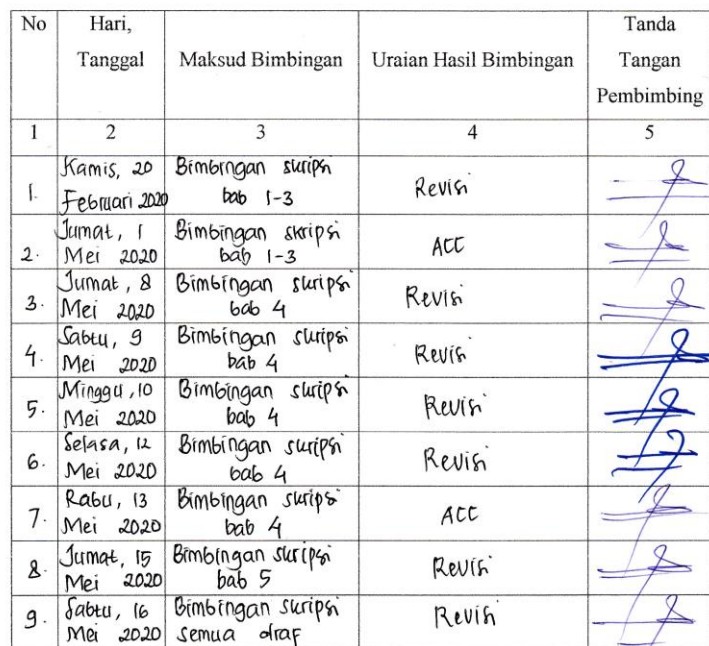 No Hari, Tanggal Maksud Bimbingan Uraian Hasil Bimbingan Tanda Tangan Pembimbing
1 2 3 4 5
1. Kamis, 20 Februari 2020 Bimbingan skripsi bab 1-3 Revisi
2. Jumat, 1 Mei 2020 Bimbingan skripsi bab 1-3 ACC
3. Jumat, 8 Mei 2020 Bimbingan skripsi bab 4 Revisi
4. Sabtu, 9 Mei 2020 Bimbingan skripsi bab 4 Revisi
5. Minggu, 10 Mei 2020 Bimbingan skripsi bab 4 Revisi
6. Selasa, 12 Mei 2020 Bimbingan skripsi bab 4 Revisi
7. Rabu, 13 Mei 2020 Bimbingan skripsi bab 4 ACC
8. Jumat, 15 Mei 2020 Bimbingan skripsi bab 5 Revisi
9. Sabtu, 16 Mei 2020 Bimbingan skripsi semua draf Revisi